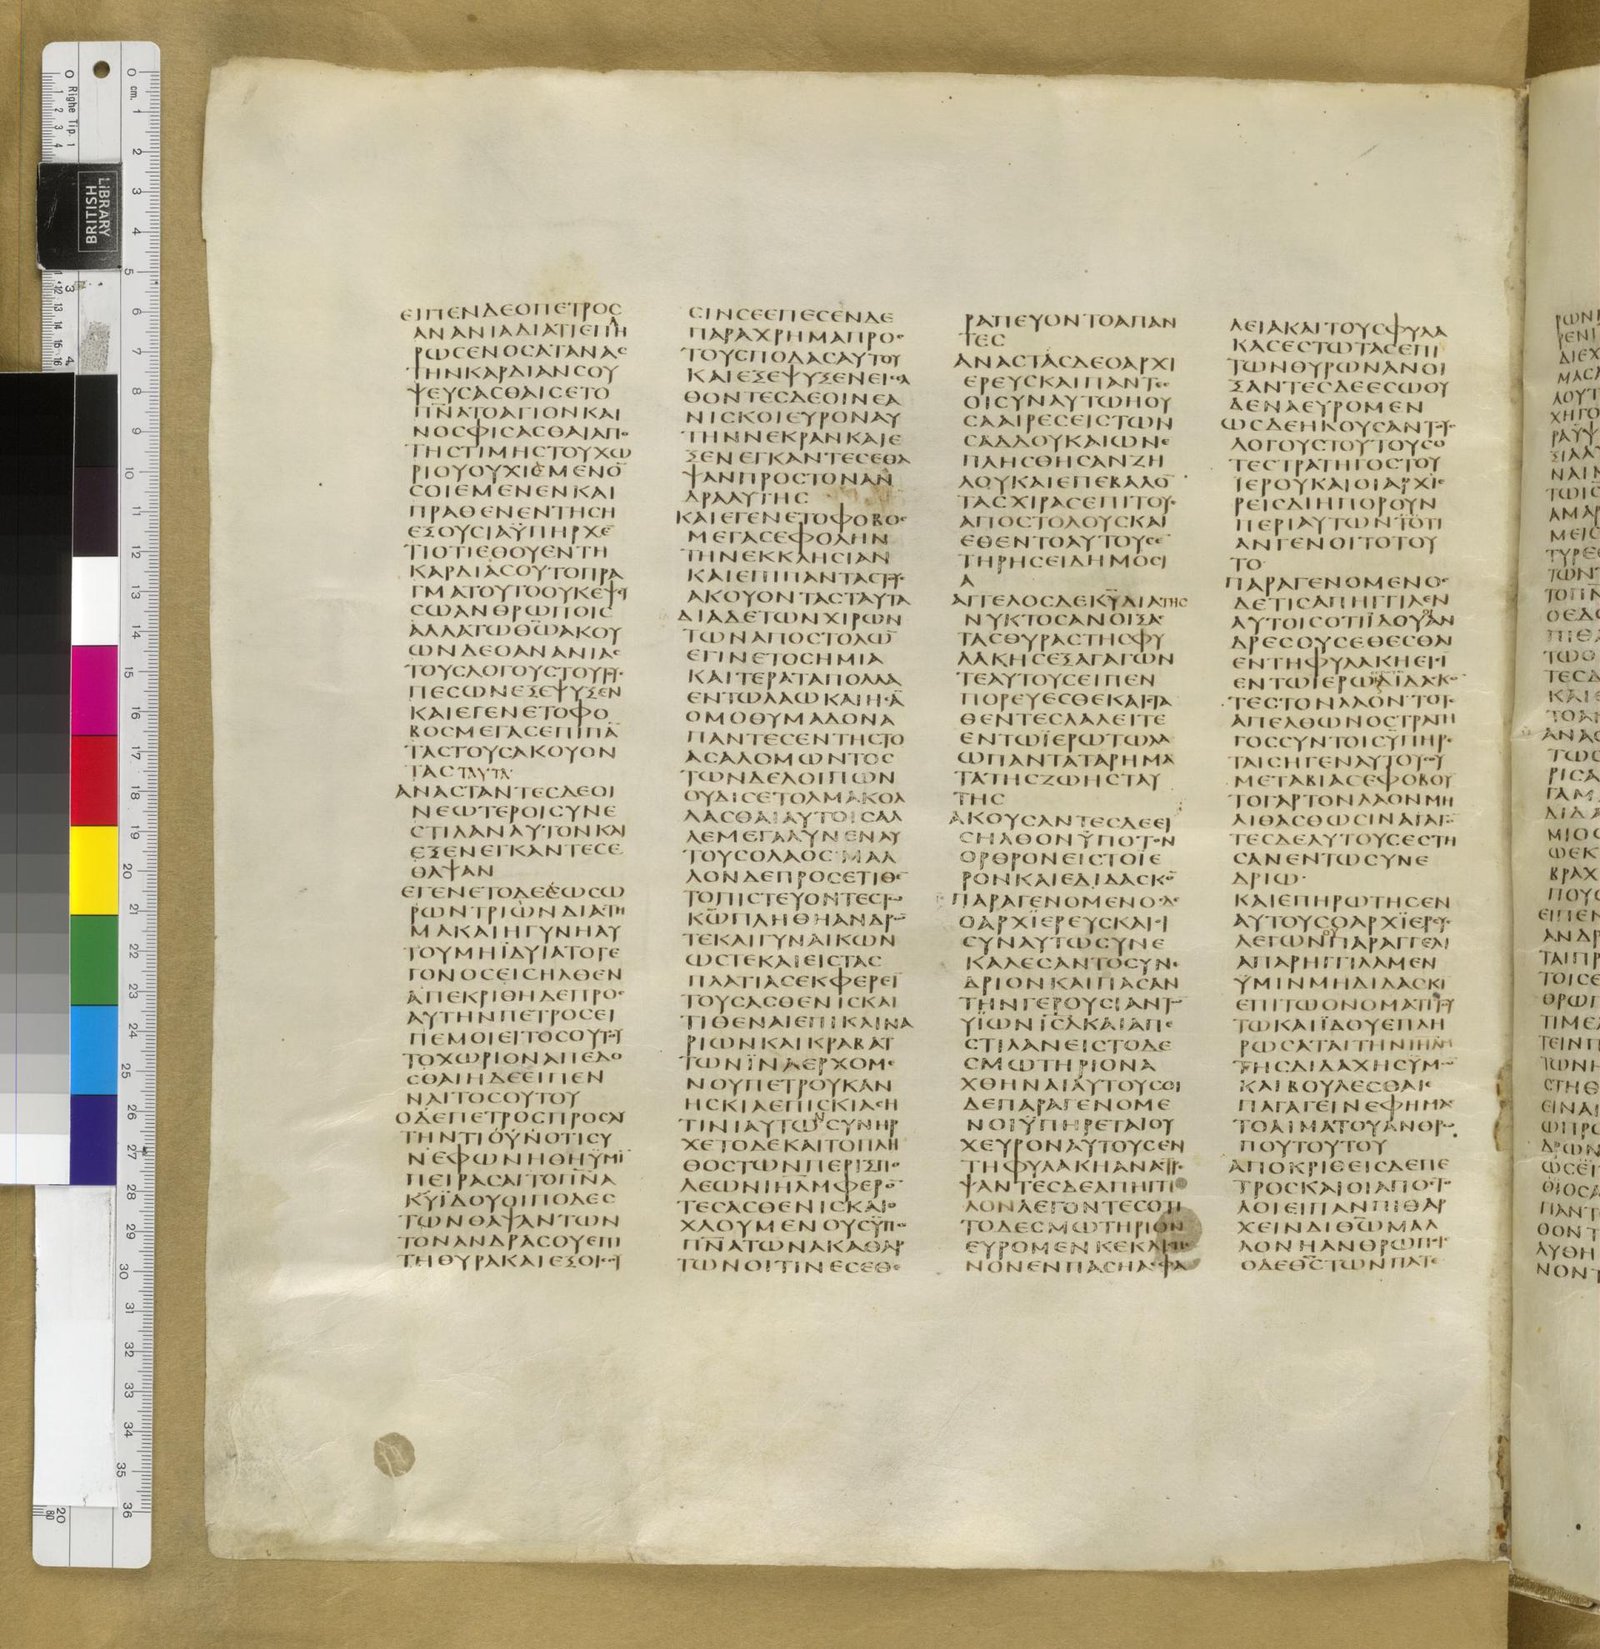 BRITISH
LIBRARY
cm.
Righe Tip. 1
ΕΙΠΕΝΔΕΟΠΕΤΡΟΣ
ΑΝΑΝΙΑΔΙΑΤΙΕΠΗ
ΡΩΣΕΝΟΣΑΤΑΝΑΣ
ΤΗΝΚΑΡΔΙΑΝΣΟΥ
ΨΕΥΣΑΣΘΑΙΣΕΤΟ
ΠΝΑΤΟΑΓΙΟΝΚΑΙ
ΝΟΣΦΙΣΑΣΘΑΙΑΠΟ
ΤΗΣΤΙΜΗΣΤΟΥΧΩ
ΡΙΟΥΟΥΧΙΕΜΕΝΟ̅
ΣΟΙΕΜΕΝΕΝΚΑΙ
ΠΡΑΘΕΝΕΝΤΗΣΗ
ΕΞΟΥΣΙΑΫΠΗΡΧΕ̅
ΤΙΟΤΙΕΘΟΥΕΝΤΗ
ΚΑΡΔΙΑΣΟΥΤΟΠΡΑ
ΓΜΑΤΟΥΤΟΟΥΚΕΨΕΥ
ΣΩΑΝΘΡΩΠΟΙΣ
ΑΛΛΑΤΩΘ̅Ω̅ΑΚΟΥ
ΩΝΔΕΟΑΝΑΝΙΑΣ
ΤΟΥΣΛΟΓΟΥΣΤΟΥΤΟΥΣ
ΠΕΣΩΝΕΞΕΨΥΞΕΝ
ΚΑΙΕΓΕΝΕΤΟΦΟ
ΒΟΣΜΕΓΑΣΕΠΙΠΑ̅
ΤΑΣΤΟΥΣΑΚΟΥΟΝ
ΤΑΣΤΑΥΤΑ
ΑΝΑΣΤΑΝΤΕΣΔΕΟΙ
ΝΕΩΤΕΡΟΙΣΥΝΕ
ΣΤΙΛΑΝΑΥΤΟΝΚΑΙ
ΕΞΕΝΕΓΚΑΝΤΕΣΕ
ΘΑΨΑΝ
ΕΓΕΝΕΤΟΔΕΕΩΣΩ
ΡΩΝΤΡΙΩΝΔΙΑΣΤΗ
ΜΑΚΑΙΗΓΥΝΗΑΥ
ΤΟΥΜΗΪΔΥΙΑΤΟΓΕ
ΓΟΝΟΣΕΙΣΗΛΘΕΝ
ΑΠΕΚΡΙΘΗΔΕΠΡΟΣ
ΑΥΤΗΝΠΕΤΡΟΣΕΙ
ΠΕΜΟΙΕΙΤΟΣΟΥΤΟΥ
ΤΟΧΩΡΙΟΝΑΠΕΔΟ
ΣΘΑΙΗΔΕΕΙΠΕΝ
ΝΑΙΤΟΣΟΥΤΟΥ
ΟΔΕΠΕΤΡΟΣΠΡΟΣΑΥ
ΤΗΝΤΙΟΥΝΟΤΙΣΥ
ΝΕΦΩΝΗΘΗΫΜΙ̅
ΠΕΙΡΑΣΑΙΤΟΠΝΑ
ΚΥΪΔΟΥΟΙΠΟΔΕΣ
ΤΩΝΘΑΨΑΝΤΩΝ
ΤΟΝΑΝΔΡΑΣΟΥΕΠΙ
ΤΗΘΥΡΑΚΑΙΕΞΟΙΣΟΥ
ΣΙΝΣΕΕΠΕΣΕΝΔΕ
ΠΑΡΑΧΡΗΜΑΠΡΟΣ
ΤΟΥΣΠΟΔΑΣΑΥΤΟΥ
ΚΑΙΕΞΕΨΥΞΕΝΕΙΣΕΛ
ΘΟΝΤΕΣΔΕΟΙΝΕΑ
ΝΙΣΚΟΙΕΥΡΟΝΑΥ
ΤΗΝΝΕΚΡΑΝΚΑΙΕ
ΞΕΝΕΓΚΑΝΤΕΣΕΘΑ
ΨΑΝΠΡΟΣΤΟΝΑΝ
ΔΡΑΑΥΤΗΣ
ΚΑΙΕΓΕΝΕΤΟΦΟΒΟΣ
ΜΕΓΑΣΕΦΟΛΗΝ
ΤΗΝΕΚΚΛΗΣΙΑΝ
ΚΑΙΕΠΙΠΑΝΤΑΣΤΟΥΣ
ΑΚΟΥΟΝΤΑΣΤΑΥΤΑ
ΔΙΑΔΕΤΩΝΧΙΡΩΝ
ΤΩΝΑΠΟΣΤΟΛΩ̅
ΕΓΙΝΕΤΟΣΗΜΙΑ
ΚΑΙΤΕΡΑΤΑΠΟΛΛΑ
ΕΝΤΩΛΑΩΚΑΙΗΣΑ̅
ΟΜΟΘΥΜΑΔΟΝΑ
ΠΑΝΤΕΣΕΝΤΗΣΤΟ
ΑΣΑΛΟΜΩΝΤΟΣ
ΤΩΝΔΕΛΟΙΠΩΝ
ΟΥΔΙΣΕΤΟΛΜΑΚΟΛ
ΛΑΣΘΑΙΑΥΤΟΙΣΑΛ
ΛΕΜΕΓΑΛΥΝΕΝΑΥ
ΤΟΥΣΟΛΑΟΣΜΑΛ
ΛΟΝΔΕΠΡΟΣΕΤΙΘΕ̅
ΤΟΠΙΣΤΕΥΟΝΤΕΣΤΩ
ΚΩΠΛΗΘΗΑΝΔΡΩ̅
ΤΕΚΑΙΓΥΝΑΙΚΩΝ
ΩΣΤΕΚΑΙΕΙΣΤΑΣ
ΠΛΑΤΙΑΣΕΚΦΕΡΕΙ̅
ΤΟΥΣΑΣΘΕΝΙΣΚΑΙ
ΤΙΘΕΝΑΙΕΠΙΚΛΙΝΑ
ΡΙΩΝΚΑΙΚΡΑΒΑΤ
ΤΩΝΪΝΑΕΡΧΟΜΕ
ΝΟΥΠΕΤΡΟΥΚΑΝ
ΗΣΚΙΑΕΠΙΣΚΙΑΣΗ
ΤΙΝΙΑΥΤΩΝΣΥΝΗΡ
ΧΕΤΟΔΕΚΑΙΤΟΠΛΗ
ΘΟΣΤΩΝΠΕΡΙΞΠΟ
ΛΕΩΝΙΗΛΜΦΕΡΟ̅
ΤΕΣΑΣΘΕΝΙΣΚΑΙΟ
ΧΛΟΥΜΕΝΟΥΣΫΠΟ
ΠΝΑΤΩΝΑΚΑΘΑΡ
ΤΩΝΟΙΤΙΝΕΣΕΘΕ
ΡΑΠΕΥΟΝΤΟΑΠΑΝ
ΤΕΣ
ΑΝΑΣΤΑΣΔΕΟΑΡΧΙ
ΕΡΕΥΣΚΑΙΠΑΝΤΕΣ
ΟΙΣΥΝΑΥΤΩΗΟΥ
ΣΑΑΙΡΕΣΕΙΣΤΩΝ
ΣΑΔΔΟΥΚΑΙΩΝΕ
ΠΛΗΣΘΗΣΑΝΖΗ
ΛΟΥΚΑΙΕΠΕΒΑΛΟ̅
ΤΑΣΧΙΡΑΣΕΠΙΤΟΥΣ
ΑΠΟΣΤΟΛΟΥΣΚΑΙ
ΕΘΕΝΤΟΑΥΤΟΥΣΕ̅
ΤΗΡΗΣΕΙΔΗΜΟΣΙ
Α
ΑΓΓΕΛΟΣΔΕΚΥΔΙΑΤΗΣ
ΝΥΚΤΟΣΑΝΟΙΞΑΣ
ΤΑΣΘΥΡΑΣΤΗΣΦΥ
ΛΑΚΗΣΕΞΑΓΑΓΩΝ
ΤΕΑΥΤΟΥΣΕΙΠΕΝ
ΠΟΡΕΥΕΣΘΕΚΑΙΣΤΑ
ΘΕΝΤΕΣΛΑΛΕΙΤΕ
ΕΝΤΩΪΕΡΩΤΩΛΑ
ΩΠΑΝΤΑΤΑΡΗΜΑ
ΤΑΤΗΣΖΩΗΣΤΑΥ
ΤΗΣ
ΑΚΟΥΣΑΝΤΕΣΔΕΕΙ
ΣΗΛΘΟΝΫΠΟΤΟΝ
ΟΡΘΡΟΝΕΙΣΤΟΙΕ
ΡΟΝΚΑΙΕΔΙΔΑΣΚΟ̅
ΠΑΡΑΓΕΝΟΜΕΝΟΣΔΕ
ΟΑΡΧΙΕΡΕΥΣΚΑΙΟΙ
ΣΥΝΑΥΤΩΣΥΝΕ
ΚΑΛΕΣΑΝΤΟΣΥΝΕ
ΔΡΙΟΝΚΑΙΠΑΣΑΝ
ΤΗΝΓΕΡΟΥΣΙΑΝΤΩ̅
ΥΪΩΝΙΣΛΚΑΙΑΠΕ
ΣΤΙΛΑΝΕΙΣΤΟΔΕ
ΣΜΩΤΗΡΙΟΝΑ
ΧΘΗΝΑΙΑΥΤΟΥΣΟΙ
ΔΕΠΑΡΑΓΕΝΟΜΕ
ΝΟΙΫΠΗΡΕΤΑΙΟΥ
ΧΕΥΡΟΝΑΥΤΟΥΣΕΝ
ΤΗΦΥΛΑΚΗΑΝΑΣΤΡΕ
ΨΑΝΤΕΣΔΕΑΠΗΓΓΙ
ΛΟΝΛΕΓΟΝΤΕΣΟΤΙ
ΤΟΔΕΣΜΩΤΗΡΙΟΝ
ΕΥΡΟΜΕΝΚΕΚΛΙΣΜΕ
ΝΟΝΕΝΠΑΣΗΑΣΦΑ
ΛΕΙΑΚΑΙΤΟΥΣΦΥΛΑ
ΚΑΣΕΣΤΩΤΑΣΕΠΙ
ΤΩΝΘΥΡΩΝΑΝΟΙ
ΞΑΝΤΕΣΔΕΕΣΩΟΥ
ΔΕΝΑΕΥΡΟΜΕΝ
ΩΣΔΕΗΚΟΥΣΑΝΤΟΥΣ
ΛΟΓΟΥΣΤΟΥΤΟΥΣΟ
ΤΕΣΤΡΑΤΗΓΟΣΤΟΥ
ΪΕΡΟΥΚΑΙΟΙΑΡΧΙΕ
ΡΕΙΣΔΙΗΠΟΡΟΥΝ
ΠΕΡΙΑΥΤΩΝΤΟΤΙ
ΑΝΓΕΝΟΙΤΟΤΟΥ
ΤΟ
ΠΑΡΑΓΕΝΟΜΕΝΟΣ
ΔΕΤΙΣΑΠΗΓΓΙΛΕΝ
ΑΥΤΟΙΣΟΤΙΪΔΟΥΑΝ
ΔΡΕΣΟΥΣΕΘΕΣΘΑΙ
ΕΝΤΗΦΥΛΑΚΗΕΙΣΙ
ΕΝΤΩΙΕΡΩΔΙΔΑΣΚΟ̅
ΤΕΣΤΟΝΛΑΟΝΤΟΤΕ
ΑΠΕΛΘΩΝΟΣΤΡΑΤΗ
ΓΟΣΣΥΝΤΟΙΣΫΠΗΡΕ
ΤΑΙΣΗΓΕΝΑΥΤΟΥΣΟΥ
ΜΕΤΑΒΙΑΣΕΦΟΒΟΥ
ΤΟΓΑΡΤΟΝΛΑΟΝΜΗ
ΛΙΘΑΣΘΩΣΙΝΑΓΑΓΟ̅
ΤΕΣΔΕΑΥΤΟΥΣΕΣΤΗ
ΣΑΝΕΝΤΩΣΥΝΕ
ΔΡΙΩ
ΚΑΙΕΠΗΡΩΤΗΣΕΝ
ΑΥΤΟΥΣΟΑΡΧΪΕΡΕΥΣ
ΛΕΓΩΝΟΥΠΑΡΑΓΓΕΛΙ
ΑΠΑΡΗΓΓΙΛΑΜΕΝ
ΫΜΙΝΜΗΔΙΔΑΣΚΙ
ΕΠΙΤΩΟΝΟΜΑΤΙΤΟΥ
ΤΩΚΑΙΪΔΟΥΕΠΛΗ
ΡΩΣΑΤΑΙΤΗΝΙΗΛΜ
ΤΗΣΔΙΔΑΧΗΣΫΜΩ̅
ΚΑΙΒΟΥΛΕΣΘΑΙΕ
ΠΑΓΑΓΕΙΝΕΦΗΜΑΣ
ΤΟΑΙΜΑΤΟΥΑΝΘΡΩ
ΠΟΥΤΟΥΤΟΥ
ΑΠΟΚΡΙΘΕΙΣΔΕΠΕ
ΤΡΟΣΚΑΙΟΙΑΠΟΣΤΟ
ΛΟΙΕΙΠΑΝΠΙΘΑΡ
ΧΕΙΝΔΙΘΩΜΑΛ
ΛΟΝΗΑΝΘΡΩΠΟΙΣ
ΟΔΕΘΣΤΩΝΠΑΤΕ